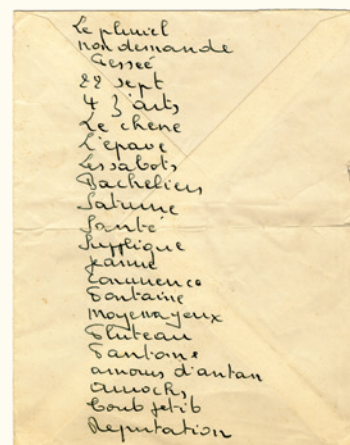 Le pluriel
non demande
Fessée
22 sept
4 z'arts
Le chene
L'épave
Les sabots
Bacheliers
Saturne
Santé
Supplique
Jeanne
Commence
Fontaine
Moyenayeux
Pluteau
Fantome
amours d'antan
Reputation